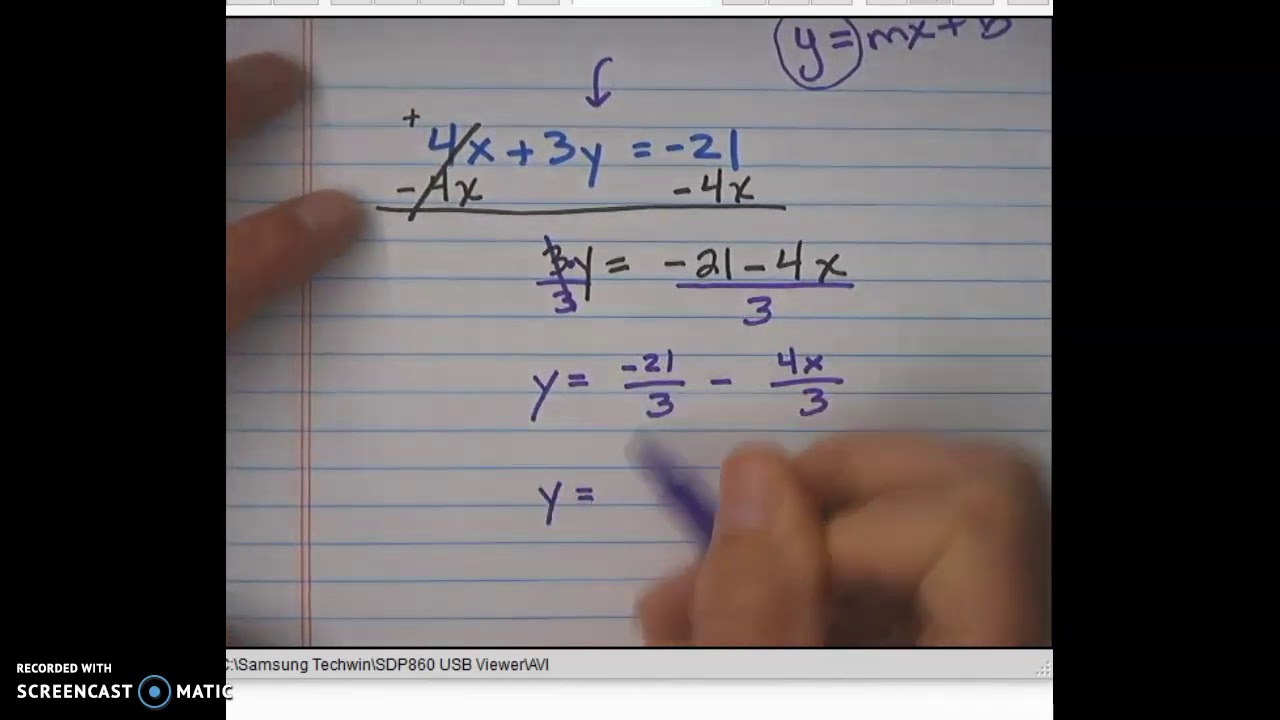 y = mx + b
+
4x + 3y = -21
-4x -4x
3y = -21 - 4x
3 3
y = -21 - 4x
3 3
y =
RECORDED WITH
SCREENCAST MATIC
C:\Samsung Techwin\SDP860 USB Viewer\AVI